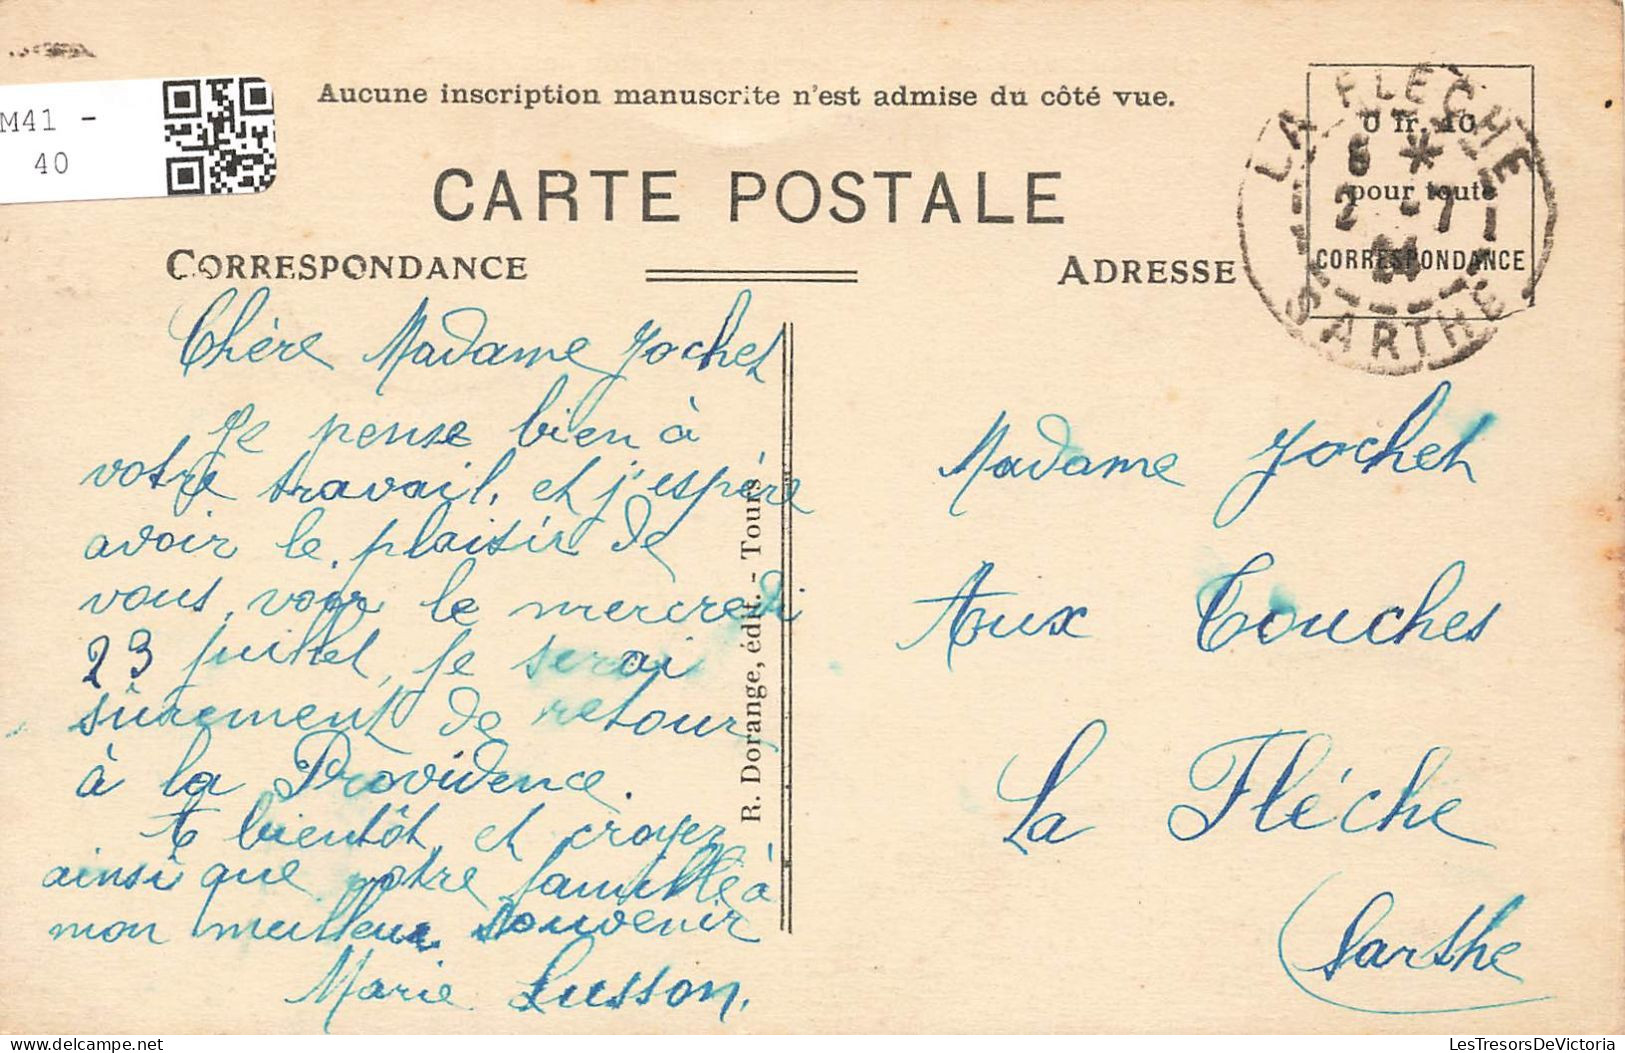 M41 -
40
Aucune inscription manuscrite n'est admise du côté vue.
CARTE POSTALE
CORRESPONDANCE
ADRESSE
0 fr. 40
pour toute
CORRESPONDANCE
LA FLECHE
8 *
2 -7
SARTHE
Chère Madame Jochet
Je pense bien à
votre travail, et j'espère
avoir le plaisir de
vous voir le mercredi
23 juillet, je serai
sûrement de retour
à la Providence.
A bientôt et croyez
ainsi que votre famille à
mon meilleur souvenir
Marie Lusson.
R. Dorange, édit. - Tours
Madame Jochet
Aux Touches
La Fléche
Sarthe
LesTresorsDeVictoria